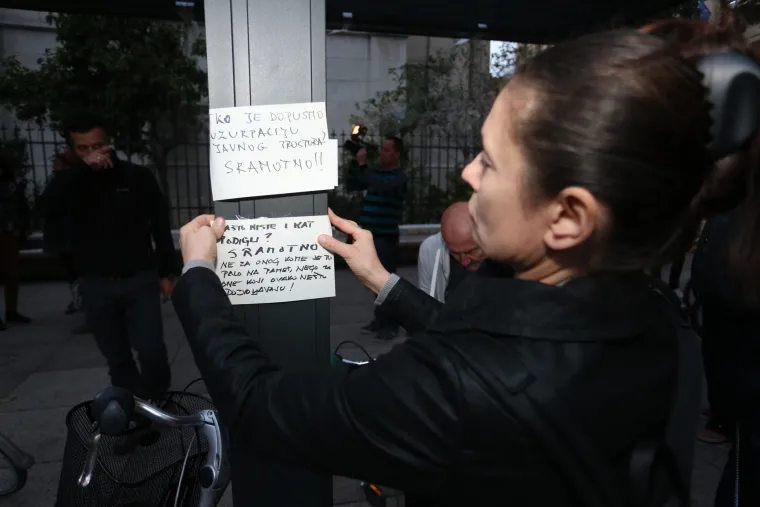 TKO JE DOPUSTIO
UZURPACIJU
JAVNOG PROSTORA?
SRAMOTNO!!
ZAŠTO NISTE I KAT
PODIGLI?
SRAMOTNO
NE ZA ONOG KOME JE TO
PALO NA PAMET, NEGO ZA
ONE KOJI OVAKO NEŠTO
DOZVOLJAVAJU!